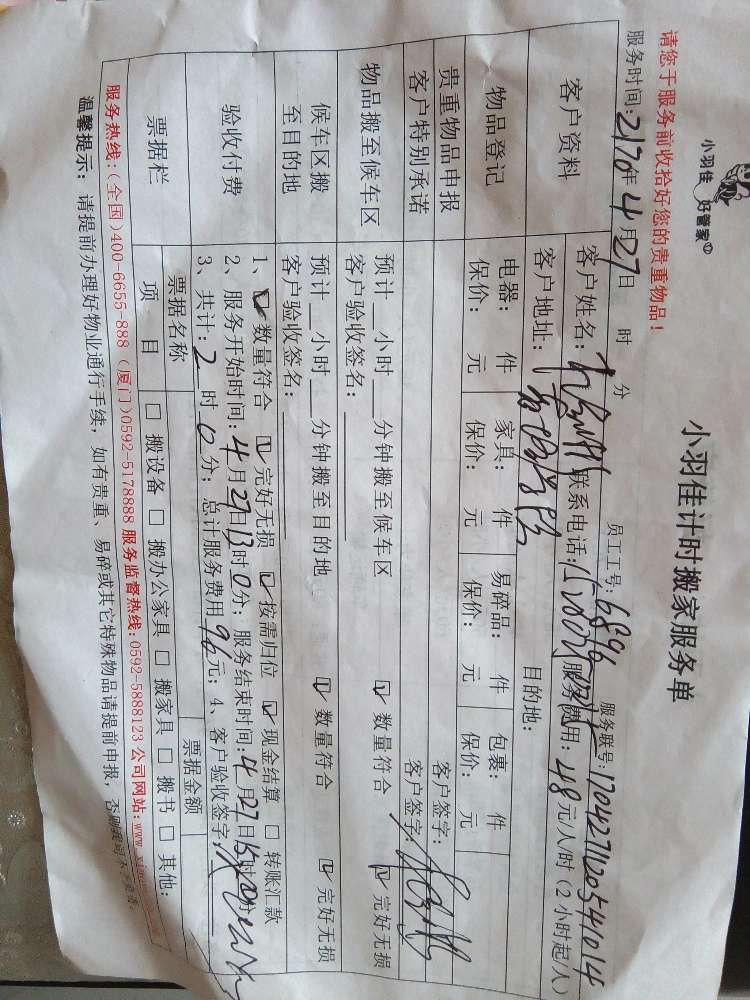 小羽佳 好管家
小羽佳计时搬家服务单
请您于服务前收拾好您的贵重物品！
员工工号: 6896 服务联号: 170427112054 1014
服务时间: 2170年4月27日 时 分
客户资料 客户姓名: 联系电话: 服务费用: 48元/人/时 (2小时起/人)
客户地址: 目的地:
物品登记 电器: 件 家具: 件 易碎品: 件 包裹: 件
保价: 元 保价: 元 保价: 元 保价: 元
贵重物品申报 客户签字:
客户特别承诺 客户签字:
物品搬至候车区 预计 小时 分钟搬至候车区 ☑ 数量符合 ☑ 完好无损
客户验收签名:
候车区搬至目的地 预计 小时 分钟搬至目的地 ☑ 数量符合 ☑ 完好无损
客户验收签名:
验收付费 1、☑ 数量符合 ☑ 完好无损 ☑ 按需归位 ☑ 现金结算 ☐ 转账汇款
2、服务开始时间: 4月27日13时0分; 服务结束时间: 4月27日15时0分
3、共计: 2时0分; 总计服务费用96元; 4、客户验收签字:
票据栏 票据名称 票据金额
项目 ☐ 搬设备 ☐ 搬办公家具 ☐ 搬家具 ☐ 搬书 ☐ 其他:
服务热线: (全国)400-6655-888 (厦门)0592-5178888 服务监督热线: 0592-5888123 公司网站: www.
温馨提示: 请提前办理好物业通行手续, 如有贵重、易碎或其它特殊物品请提前申报, 否则我司不予负责.